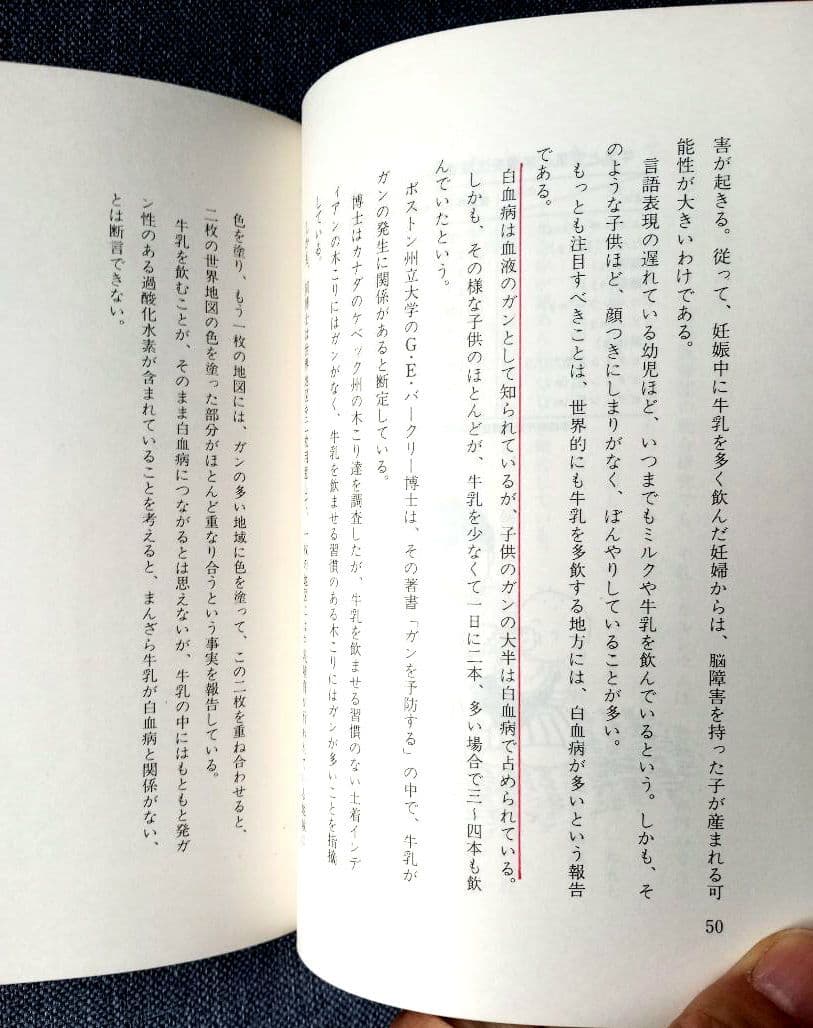 害が起きる。従って、妊娠中に牛乳を多く飲んだ妊婦からは、脳障害を持った子が産まれる可
能性が大きいわけである。
言語表現の遅れている幼児ほど、いつまでもミルクや牛乳を飲んでいるという。しかも、そ
のような子供ほど、顔つきにしまりがなく、ぼんやりしていることが多い。
もっとも注目すべきことは、世界的にも牛乳を多飲する地方には、白血病が多いという報告
である。
白血病は血液のガンとして知られているが、子供のガンの大半は白血病で占められている。
しかも、その様な子供のほとんどが、牛乳を少なくて一日に二本、多い場合で三〜四本も飲
んでいたという。
ボストン州立大学のG・E・バークリー博士は、その著書「ガンを予防する」の中で、牛乳が
ガンの発生に関係があると断定している。
博士はカナダのケベック州の木こり達を調査したが、牛乳を飲ませる習慣のない土着インデ
ィアンの木こりにはガンがなく、牛乳を飲ませる習慣のある木こりにはガンが多いことを指摘
している。
50
色を塗り、もう一枚の地図には、ガンの多い地域に色を塗って、この二枚を重ね合わせると、
二枚の世界地図の色を塗った部分がほとんど重なり合うという事実を報告している。
牛乳を飲むことが、そのまま白血病につながるとは思えないが、牛乳の中にはもともと発ガ
ン性のある過酸化水素が含まれていることを考えると、まんざら牛乳が白血病と関係がない、
とは断言できない。